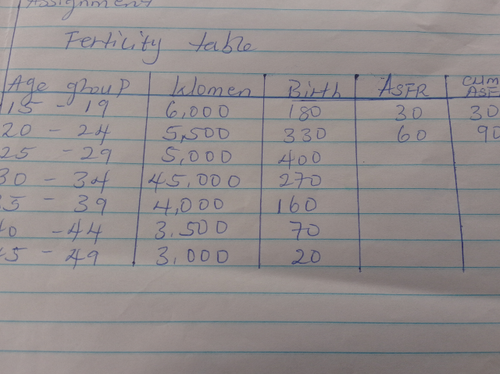 Assignment
Fertility table
Age group Women Birth ASFR cum ASF
15 - 19 6,000 180 30 30
20 - 24 5,500 330 60 90
25 - 29 5,000 400
30 - 34 45,000 270
35 - 39 4,000 160
40 - 44 3.500 70
45 - 49 3.000 20